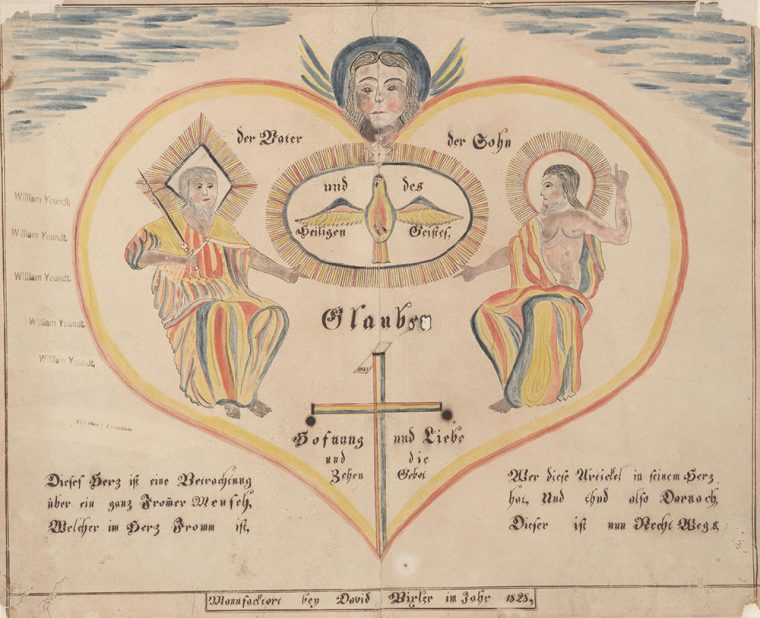 der Vater
der Sohn
und des
Heiligen Geistes,
William Youndt.
William Youndt.
William Youndt.
William Youndt.
William Youndt.
Glaube
Hofnung und Liebe
und die
Zehen Gebot
Dieses Herz ist eine Betrachtung
über ein ganz From̅er Mensch,
Welcher im Herz Fromm ist,
Wer diese Artickel in seinem Herz
hat, Und thud also Darnach
Dieser ist nun Recht Wegs
Manufactort bey David Bixler im Jahr 1828,